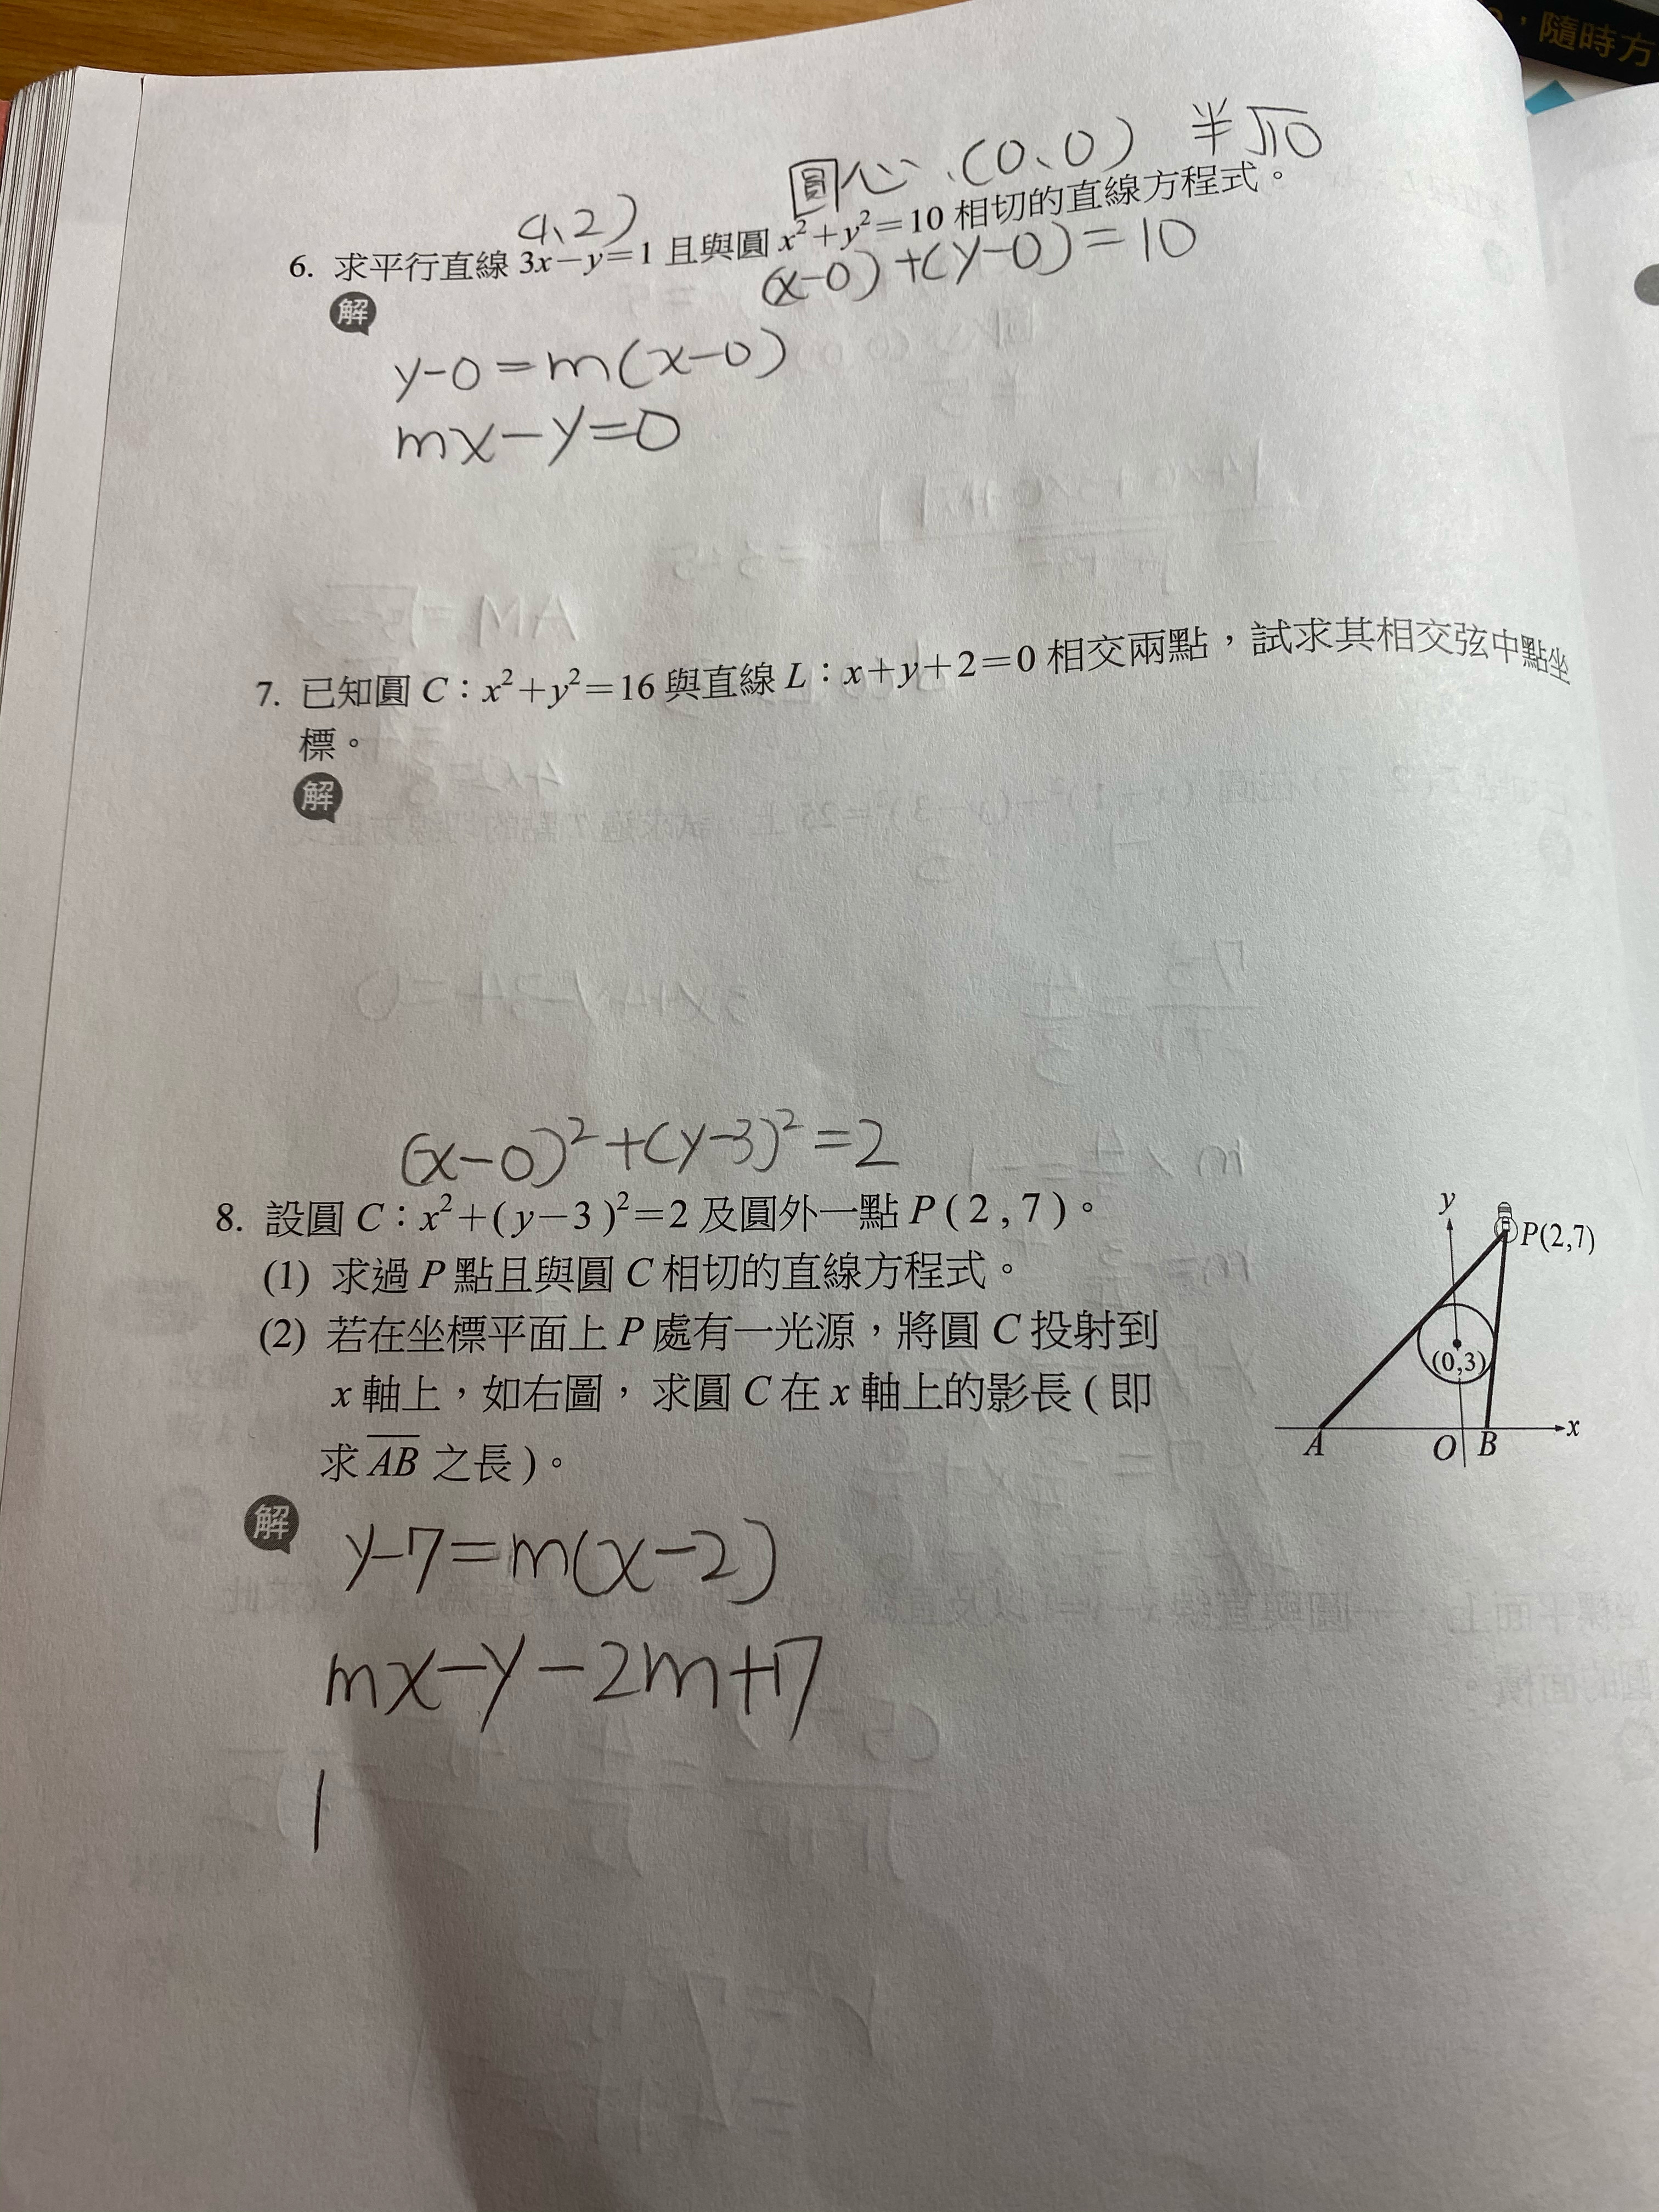 ，隨時方
圓心、(0、0) 半√10
(1、2)
6. 求平行直線 3x−y=1 且與圓 x²+y²=10 相切的直線方程式。
(x-0)+(y-0)=10
解
y-0=m(x-0)
mx-y=0
7. 已知圓 C：x²+y²=16 與直線 L：x+y+2=0 相交兩點，試求其相交弦中點坐
標。
解
(x-0)²+(y-3)²=2
8. 設圓 C：x²+(y−3)²=2 及圓外一點 P(2,7)。
(1) 求過 P 點且與圓 C 相切的直線方程式。
(2) 若在坐標平面上 P 處有一光源，將圓 C 投射到
x 軸上，如右圖，求圓 C 在 x 軸上的影長(即
求 AB 之長)。
y
P(2,7)
(0,3)
A O B x
解
y-7=m(x-2)
mx-y-2m+7